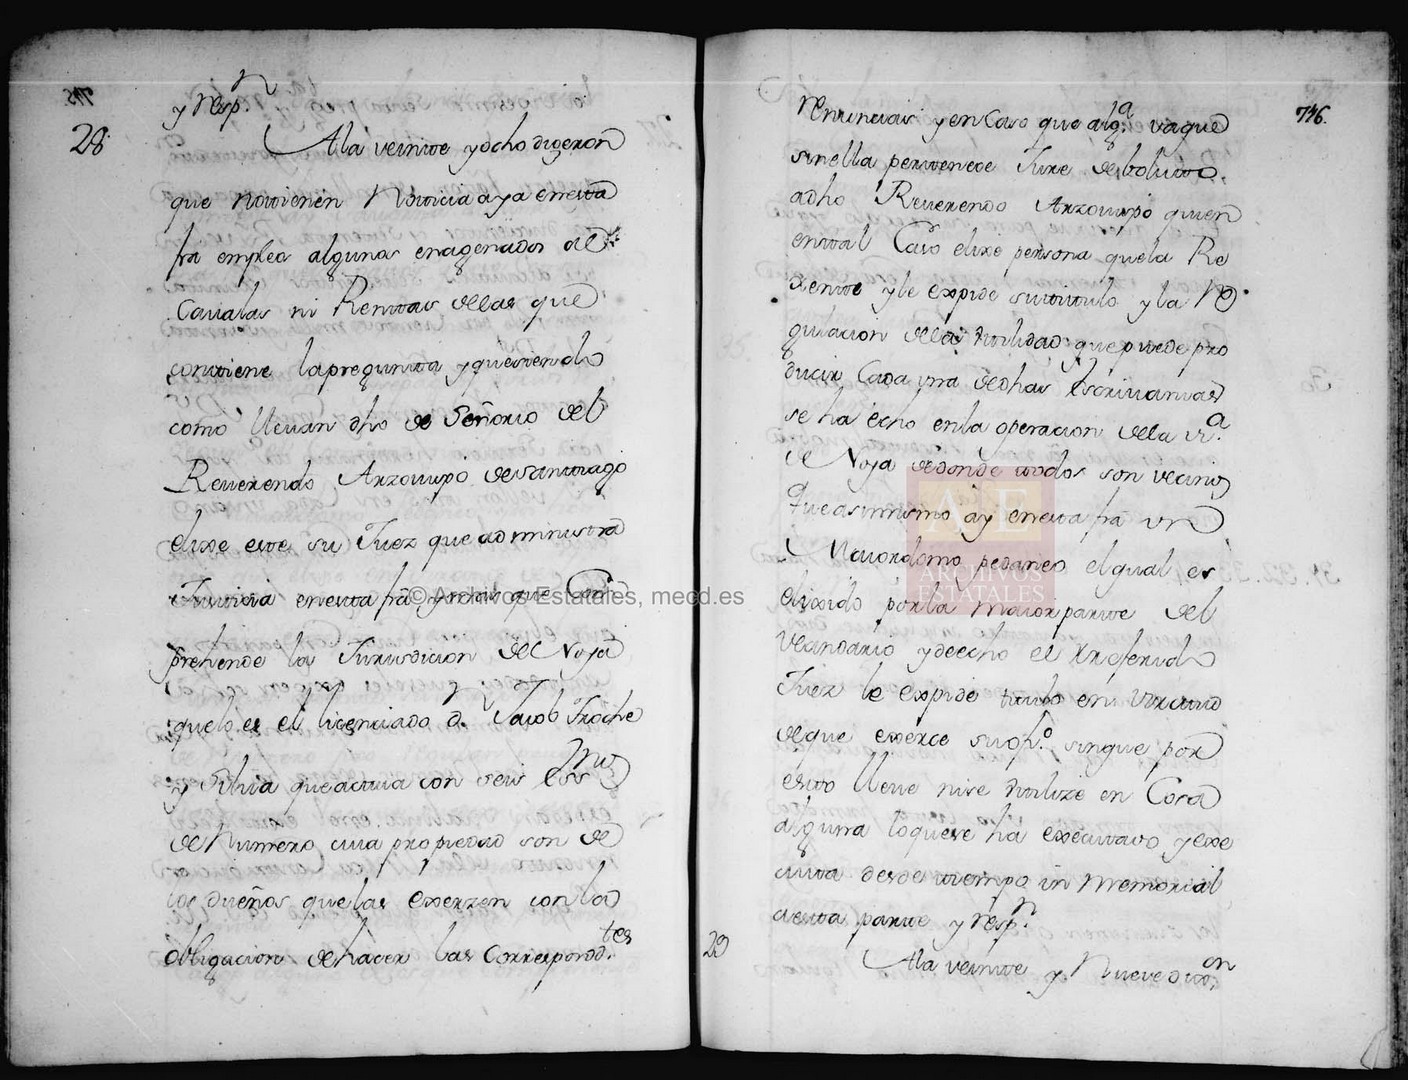 y resp.n
28
A la veintte y ocho digeron
que no ttienen Notticia aya en estta
fra empleo algunos enagenados Al
Cavalas ni Renttas Reales que
conttiene la preguntta y que siendo
como llevan dho de Señorio del
Reverendo Arzovispo de Santtiago
elixe estte su Juez que administtra
Justticia en estta fra y mas que Com
prehende la Jurisdicion de Noya
que lo es el licenciado d. Jacob Troche
y Silva que actua con seis Essnos
de Numero cuia propiedad son de
los dueños que las exerzen con la
obligacion de hacer las Correspond.tes
746.
renuncias y en Caso que alg.a vaque
sin ella perttenece Jure debolutto
a dho Reverendo Arzovispo quien
en ttal Caso elixe persona que la Re
xentte y le expide su tittulo y la Re
gulacion de la uttilidad que puede pro
ducir Cada una de dhas Escrivanias
se ha echo en la operacion de la v.a
de Noya de donde ttodos son vecinos
Que asimismo ay en estta fra un
Maiordomo pedaneo el qual es
elixido por la maior partte del
Vecindario y de echo el Referido
Juez le expide titulo en Virttud
de que exerce su of.o sin que por
estto lleve ni se uttilize en Cosa
alguna lo que se ha executtado y exe
cutta desde ttiempo in memorial
a estta partte y resp.n
29
A la veintte y Nueve dix.on
© Archivos Estatales, mecd.es
AE
ARCHIVOS
ESTATALES